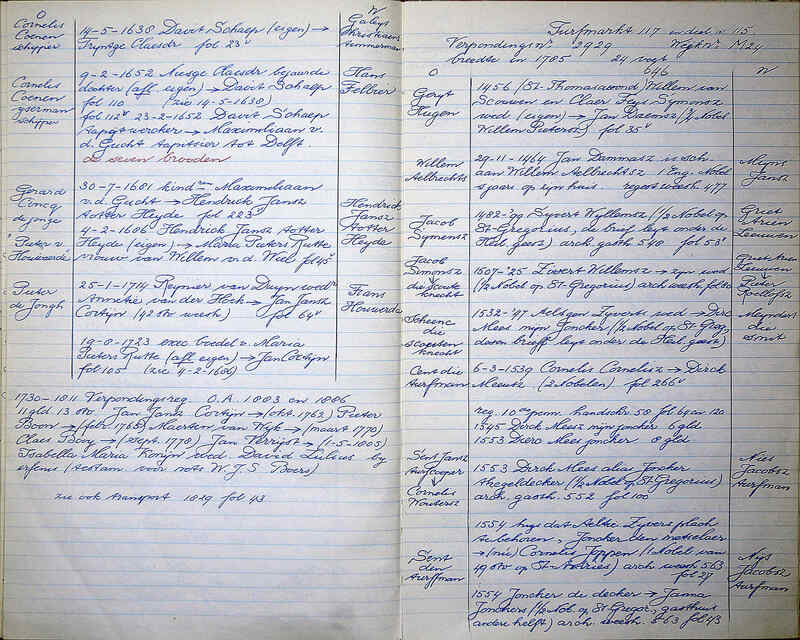 O
W
Cornelis
Coenen
schipper
14-5-1638 Davit Schaep (eigen) →
Fryntge Claesdr fol 23v
Galeys
Christiaens
timmerman
Cornelis
Coenen
schipper
9-2-1652 Niesge Claesdr bejaerde
dochter (afl. eigen) → Davit Schaep
fol 110 (zie 14-5-1638)
fol 112v 23-2-1652 Davit Schaep
tapytwercker → Maximiliaan v.
d. Gucht tapitsier tot Delft.
de seven brooden
Hans
Gerard
Concq
de jonge
30-7-1681 kind Maximiliaan
v.d. Gucht → Hendrick Jansz
Aotter Heyde fol 223
Hendrick
Jansz
Aotter
Heyde
Pieter v.
Houwaerde
4-2-1686 Hendrick Jansz Aotter
Heyde (eigen) → Maria Pieters Rutte
vrouw van Willem v.d. Wiel fol 45v
Pieter
de Jongh
25-1-1714 Reynier van Duyn wedr
Anneke van der Hock → Jan Jansz
Cortyn (42 sto wesk) fol 64v
Frans
Houwerda
19-8-1723 exec boedel v. Maria
Pieters Rutte (afl eigen) → Jan Cortyn
fol 105 (zie 4-2-1686)
1730-1811 Verpondingsreg. O.A. 1883 en 1886
11 gld 13 sto Jan Jansz Cortyn → (oct. 1762) Pieter
Boon → (febr 1768) Maerten van Wyk → (maart 1770)
Claes Booy → (sept. 1778) Jan Verryst → (1-5-1805)
Isabella Maria Konyn wed. David Lilius by
erfenis (testam. voor nots W.J.S. Boers)
zie ook transport 1829 fol 43
Turfmarkt 117 en deel v. 115
Verpondingsnr 2929 Wijknr M24
breedte in 1785 24 voet
O
646
W
Goryt
Hugen
1456 (St-Thomasavond) Willem van
Scouwen en Claer Feys Symonsz
wed (eigen) → Jan Daemsz (½ Nobel
Willem Pietersz) fol 35v
Willem
Aelbrechts
29-11-1464 Jan Dammasz is sch.
aan Willem Aelbrechtsz 1 Eng. Nobel
sjaers op zyn huis. regost wesk. 477
Meyns
Jansz
Jacob
Symensz
1482-'99 Syvert Wyllemsz (½ Nobel op
St-Gregorius, de brief leyt onder de
Heil. geest) arch. gasth 540 fol 58v
Griet
Arien
Leeuwen
Jacob
Simonsz
die schout
knecht
1507-'25 Zivert Willemsz → zyn wed
(½ Nobel op St-Gregorius) arch wesk fol 80
Griet Arien
Leeuwen
↓
Pieter
Roelofsz
die
knecht
1532-'47 Aelsgen Zyverts wed → Dirc
Mees mijn Joncker (½ Nobel op St-Greg,
desen brieff leyt onder de Heil. geest)
Meyndert
die
smit
Cent die
turfman
6-3-1539 Cornelis Cornelisz → Dirck
Meeusz. (2 Nobelen) fol 266v
reg. 10en penn. handschr. 58 fol 69 en 120
1545 Dirck Meesz mijn joncker 6 gld
1553 Dierc Mees joncker 8 gld
Sent Jansz
turfcooper
↓
Cornelis
Woutersz
1553 Dirck Mees alias Joncker
tregeldecker (½ Nobel op St-Gregorius)
arch. gasth 552 fol 100
Nies
Jacobsz
turfman
Sent
den
turffman
1554 huys dat Aeltke Zyvers plach
te behoren, Joncker den metselaer
→ (nu) Cornelis Joppen (1 Nobel van
49 sto op St-Andries) arch wesk 563
fol 27
Nys
Jacobsz
turfman
1554 Joncker de decker → Janna
Jonckers (½ Nob. op St-Gregor., gasthuis
andere helft) arch. wesk. 563 fol 43